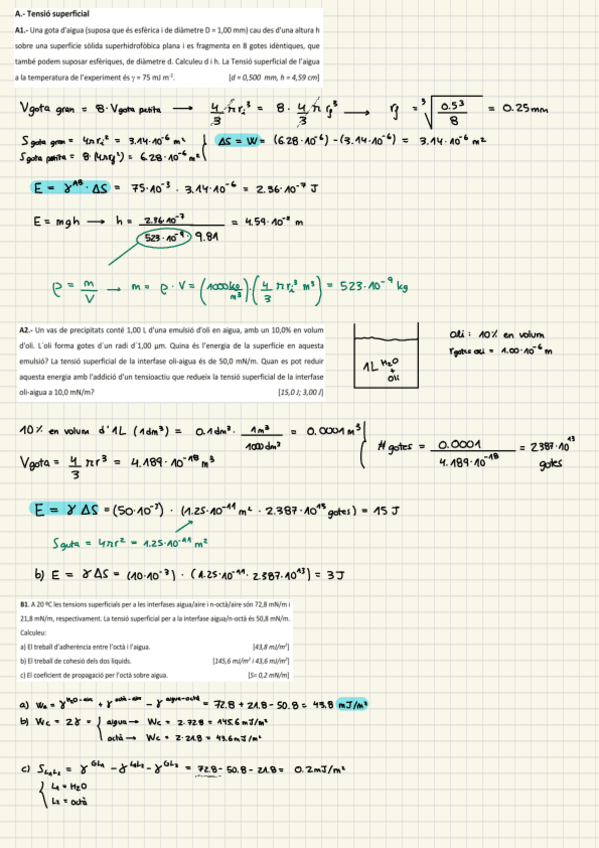 A.- Tensió superficial
A1.- Una gota d'aigua (suposa que és esfèrica i de diàmetre D = 1,00 mm) cau des d'una altura h
sobre una superfície sòlida superhidrofòbica plana i es fragmenta en 8 gotes idèntiques, que
també podem suposar esfèriques, de diàmetre d. Calculeu d i h. La Tensió superficial de l'aigua
a la temperatura de l'experiment és γ = 75 mJ m⁻². [d = 0,500 mm, h = 4,59 cm]
Vgota gran = 8·Vgota petita → 4/3 π r³ = 8 · 4/3 π r³ → r = ³√(0.5³/8) = 0.25mm
S gota gran = 4πr² = 3.14·10⁻⁶ m²
S gota petita = 8(4πr²) = 6.28·10⁻⁶ m²
ΔS = W = (6.28·10⁻⁶) - (3.14·10⁻⁶) = 3.14·10⁻⁶ m²
E = γᴬᴮ · ΔS = 75·10⁻³ · 3.14·10⁻⁶ = 2.36·10⁻⁷ J
E = mgh → h = 2.36·10⁻⁷ / 523·10⁻⁹ · 9.81 = 4.59·10⁻² m
ρ = m/V → m = ρ·V = (1000 kg/m³)·(4/3 π r³ m³) = 523·10⁻⁹ kg
A2.- Un vas de precipitats conté 1,00 L d'una emulsió d'oli en aigua, amb un 10,0% en volum
d'oli. L'oli forma gotes d'un radi d'1,00 μm. Quina és l'energia de la superfície en aquesta
emulsió? La tensió superficial de la interfase oli-aigua és de 50,0 mN/m. Quan es pot reduir
aquesta energia amb l'addició d'un tensioactiu que redueix la tensió superficial de la interfase
oli-aigua a 10,0 mN/m? [15,0 J; 3,00 J]
1L H₂O
+
oli
Oli: 10% en volum
rgotes oli = 1.00·10⁻⁶ m
10% en volum d'1L (1dm³) = 0.1dm³ · 1m³/1000dm³ = 0.0001m³
Vgota = 4/3 πr³ = 4.189·10⁻¹⁸ m³
# gotes = 0.0001 / 4.189·10⁻¹⁸ = 2387·10¹³ gotes
E = γ ΔS = (50·10⁻³) · (1.25·10⁻¹¹ m² · 2.387·10¹³ gotes) = 15 J
Sgota = 4πr² = 1.25·10⁻¹¹ m²
b) E = γ ΔS = (10·10⁻³) · (1.25·10⁻¹¹ · 2.387·10¹³) = 3J
B1. A 20 ºC les tensions superficials per a les interfases aigua/aire i n-octà/aire són 72,8 mN/m i
21,8 mN/m, respectivament. La tensió superficial per a la interfase aigua/n-octà és 50,8 mN/m.
Calculeu:
a) El treball d'adherència entre l'octà i l'aigua. [43,8 mJ/m²]
b) El treball de cohesió dels dos líquids. [145,6 mJ/m² i 43,6 mJ/m²]
c) El coeficient de propagació per l'octà sobre aigua. [S= 0,2 mN/m]
a) Wa = γ^H₂O-aire + γ^octà-aire - γ^aigua-octà = 72.8 + 21.8 - 50.8 = 43.8 mJ/m²
b) Wc = 2γ =
aigua → Wc = 2·72.8 = 145.6mJ/m²
octà → Wc = 2·21.8 = 43.6mJ/m²
c) S_L₁L₂ = γ^GL₁ - γ^L₁L₂ - γ^GL₂ = 72.8 - 50.8 - 21.8 = 0.2mJ/m²
L₁ = H₂O
L₂ = octà